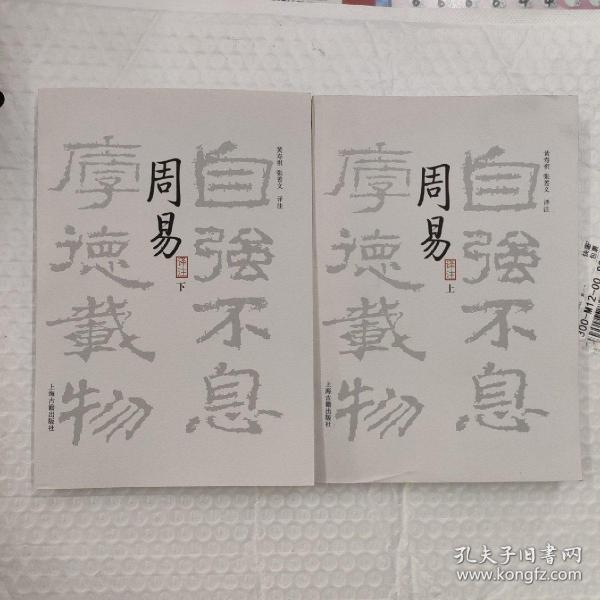 自強不息
厚德載物
周易
译注
下
黄寿祺 张善文 译注
上海古籍出版社
自強不息
厚德載物
周易
译注
上
黄寿祺 张善文 译注
上海古籍出版社
300-M12-00
孔夫子旧书网
www.kongfz.com